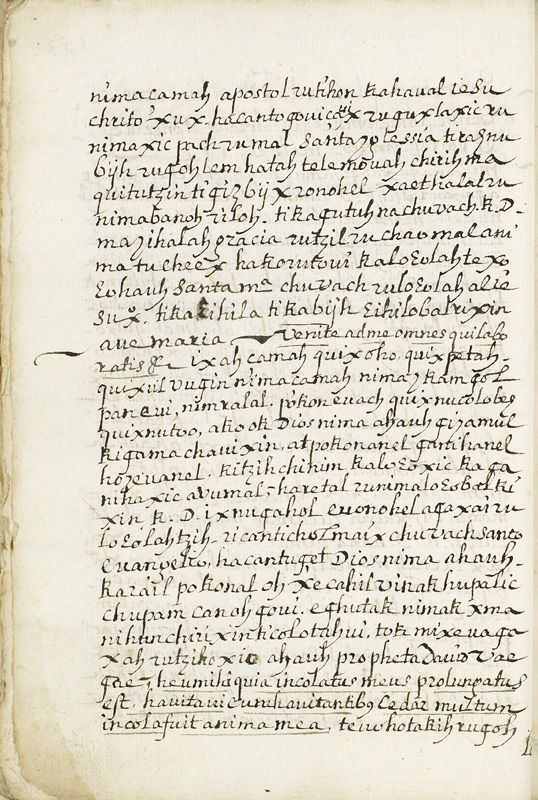 nimacamah apostol rutihon kahaval iesu
chrito xux. hacantogovi ruguxlaxic ru
nimaxic pach rumal santa yglessia tirasnu
bijh rugohlem hatah telemovah chirihma
quitutzin tigizbijx ronohel xaethalal ru
nimabanoh riloh. tikagutuh nachuvach. k. D.
ma yihalah gracia rutzil ru chaomal ani
ma tucheex hakorutovi kaloεolahtexo
santa mᵃ chuvach ruloεolah al ie
su xº. tika ihila tikabijh εihilobal rixin
ave maria venite adme omnes quilabo
ratis &. ixah camah quixoho, quixpetah.
quixul vugin nimacamah nima
pan evi, nimralal. pokon evach quixnucolobes
quixnutoo, akook Dios nima ahauh
kigama chavixin, atpokonanel
kitzih chinim kaloεoxic kaga
nihaxic avumal, haretal runimaloεobal ki
xin k. D. ixnugahol evonohel agaxai ru
loεolahtzih. ricantichol maix chuvach santo
evangelio, hacantuget Dios nima ahauh.
karail pokonal oh xecahil vinak hupalic
chupam canoh govi. eghutak nimak xma
nihunchiri xinticolotahvi, tok mixevaga
xah rutzihoxic ahauh propheta David vae
gae. heu mihi quia incolatus meus prolungatus
est, havitavi cum havitantibꝯ Cedar multum
incola fuit anima mea. tevohotakih rugoh